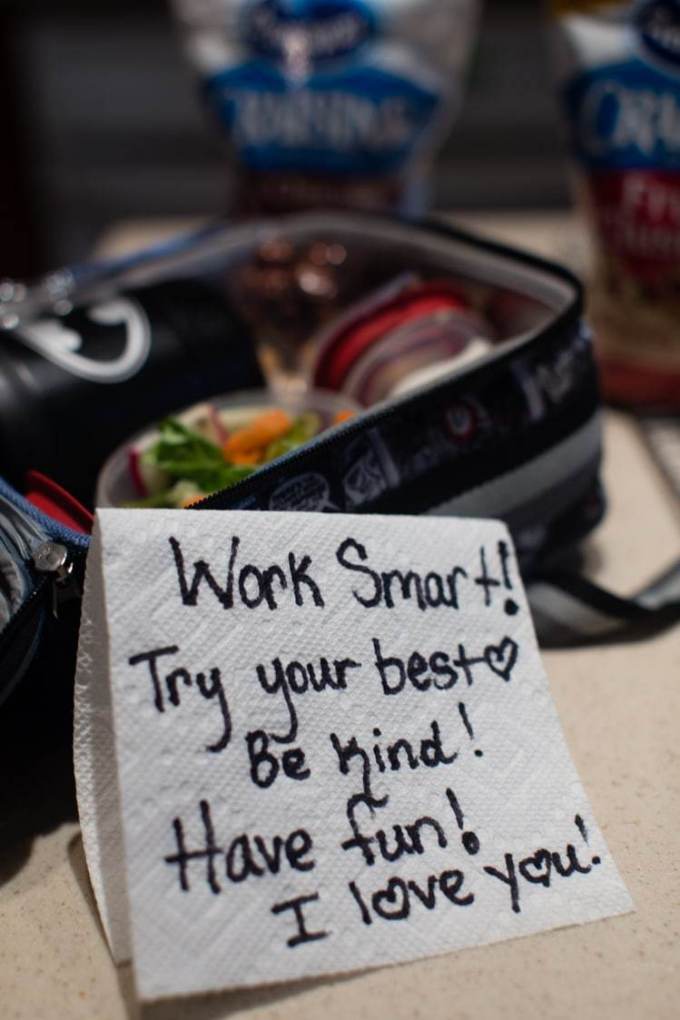 Work Smart!
Try your best ♡
Be kind!
Have fun!
I love you!